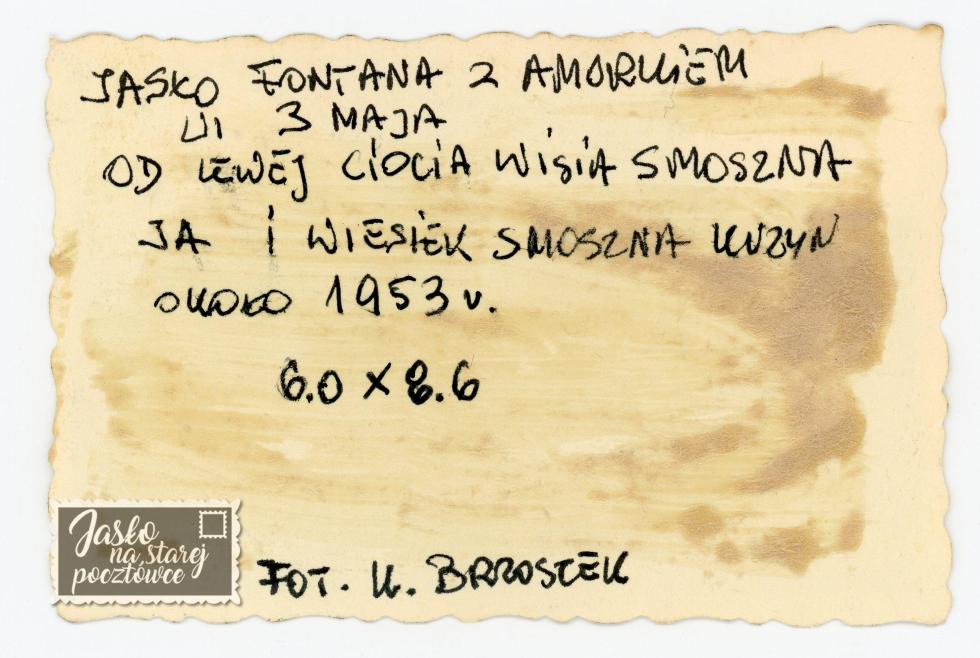 JASŁO FONTANA Z AMORKIEM
Ul 3 MAJA
OD LEWEJ CIOCIA WISIA SMOSZNA
JA I WIESIEK SMOSZNA KUZYN
OKOŁO 1953 r.
6.0 x 8.6
FOT. K. BRZOSTEK
Jasło
na starej
pocztówce